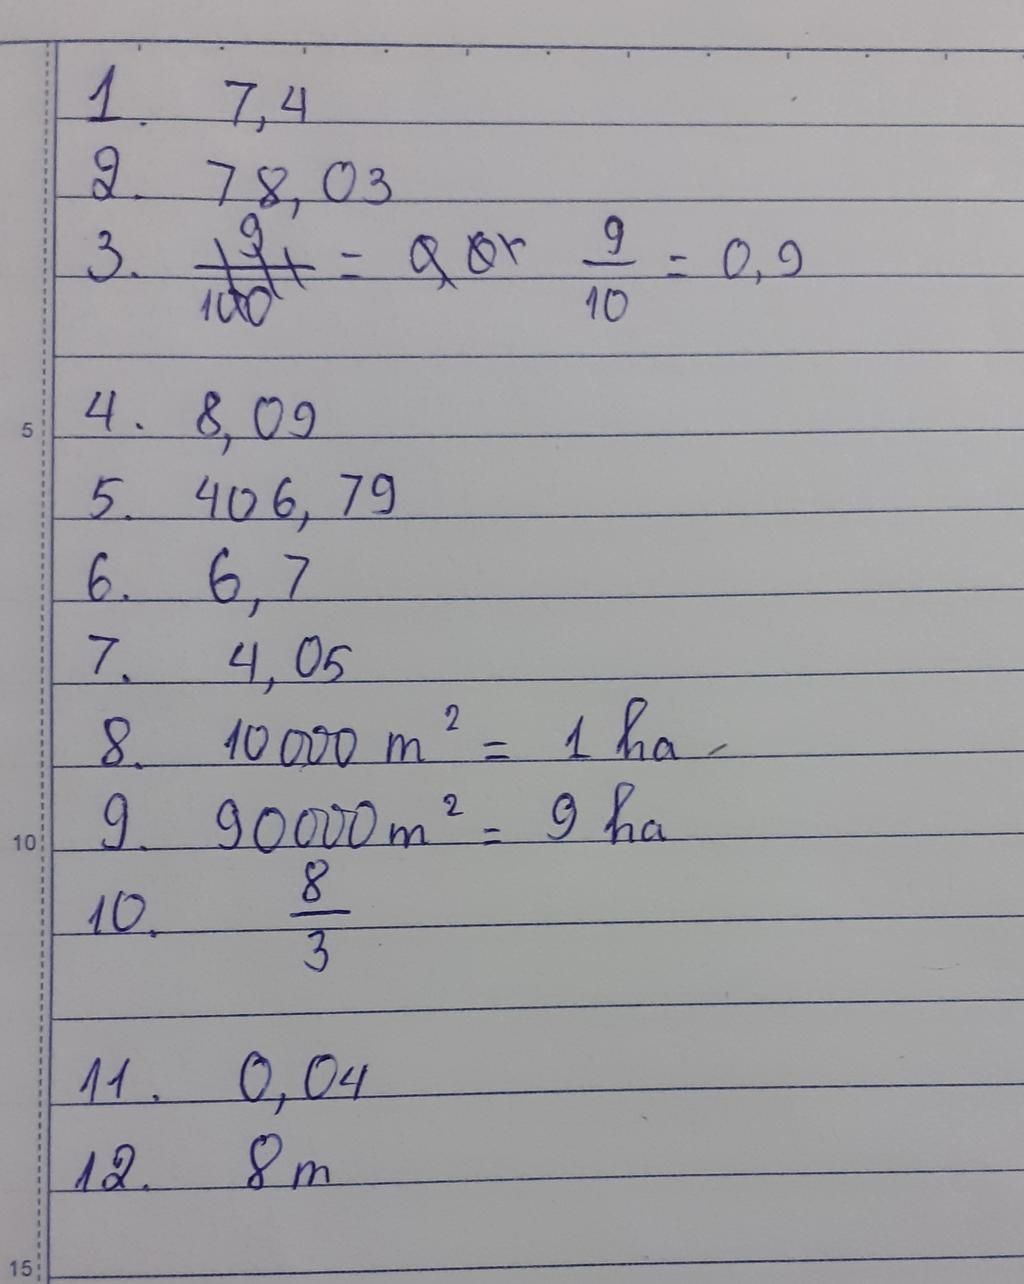 1. 7,4
2. 78,03
3. 9/100 = 0,0r 9/10 = 0,9
5
4. 8,09
5. 406,79
6. 6,7
7. 4,05
8. 10000 m² = 1 ha
9. 90000 m² = 9 ha
10
10. 8/3
11. 0,04
12. 8m
15